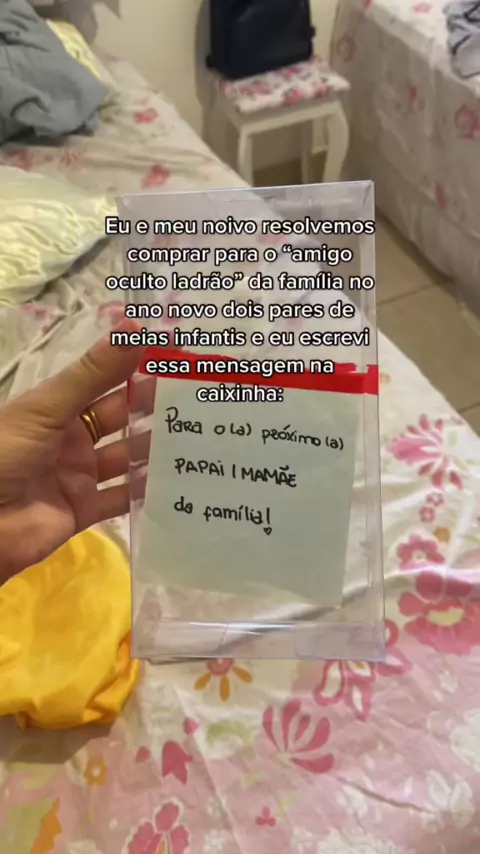 Eu e meu noivo resolvemos
comprar para o “amigo
oculto ladrão” da família no
ano novo dois pares de
meias infantis e eu escrevi
essa mensagem na
caixinha:
PARA o(a) próximo(a)
PAPAI / MAMÃE
da família!